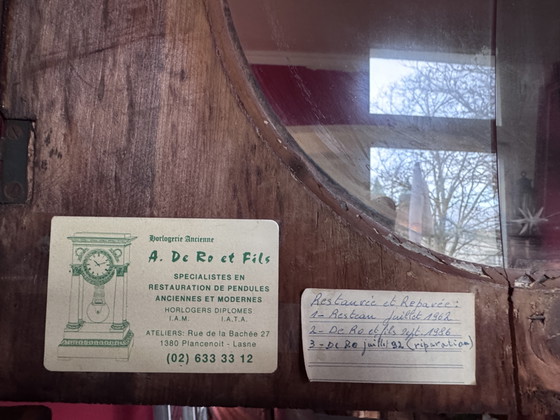 Horlogerie Ancienne
A. De Ro et Fils
SPECIALISTES EN
RESTAURATION DE PENDULES
ANCIENNES ET MODERNES
HORLOGERS DIPLOMES
I.A.M. I.A.T.A.
ATELIERS: Rue de la Bachée 27
1380 Plancenoit - Lasne
(02) 633 33 12
Restaurée et Réparée:
1- Resteau juillet 1962
2- De Ro et fils sept. 1986
3- De Ro juillet 92 (réparation)